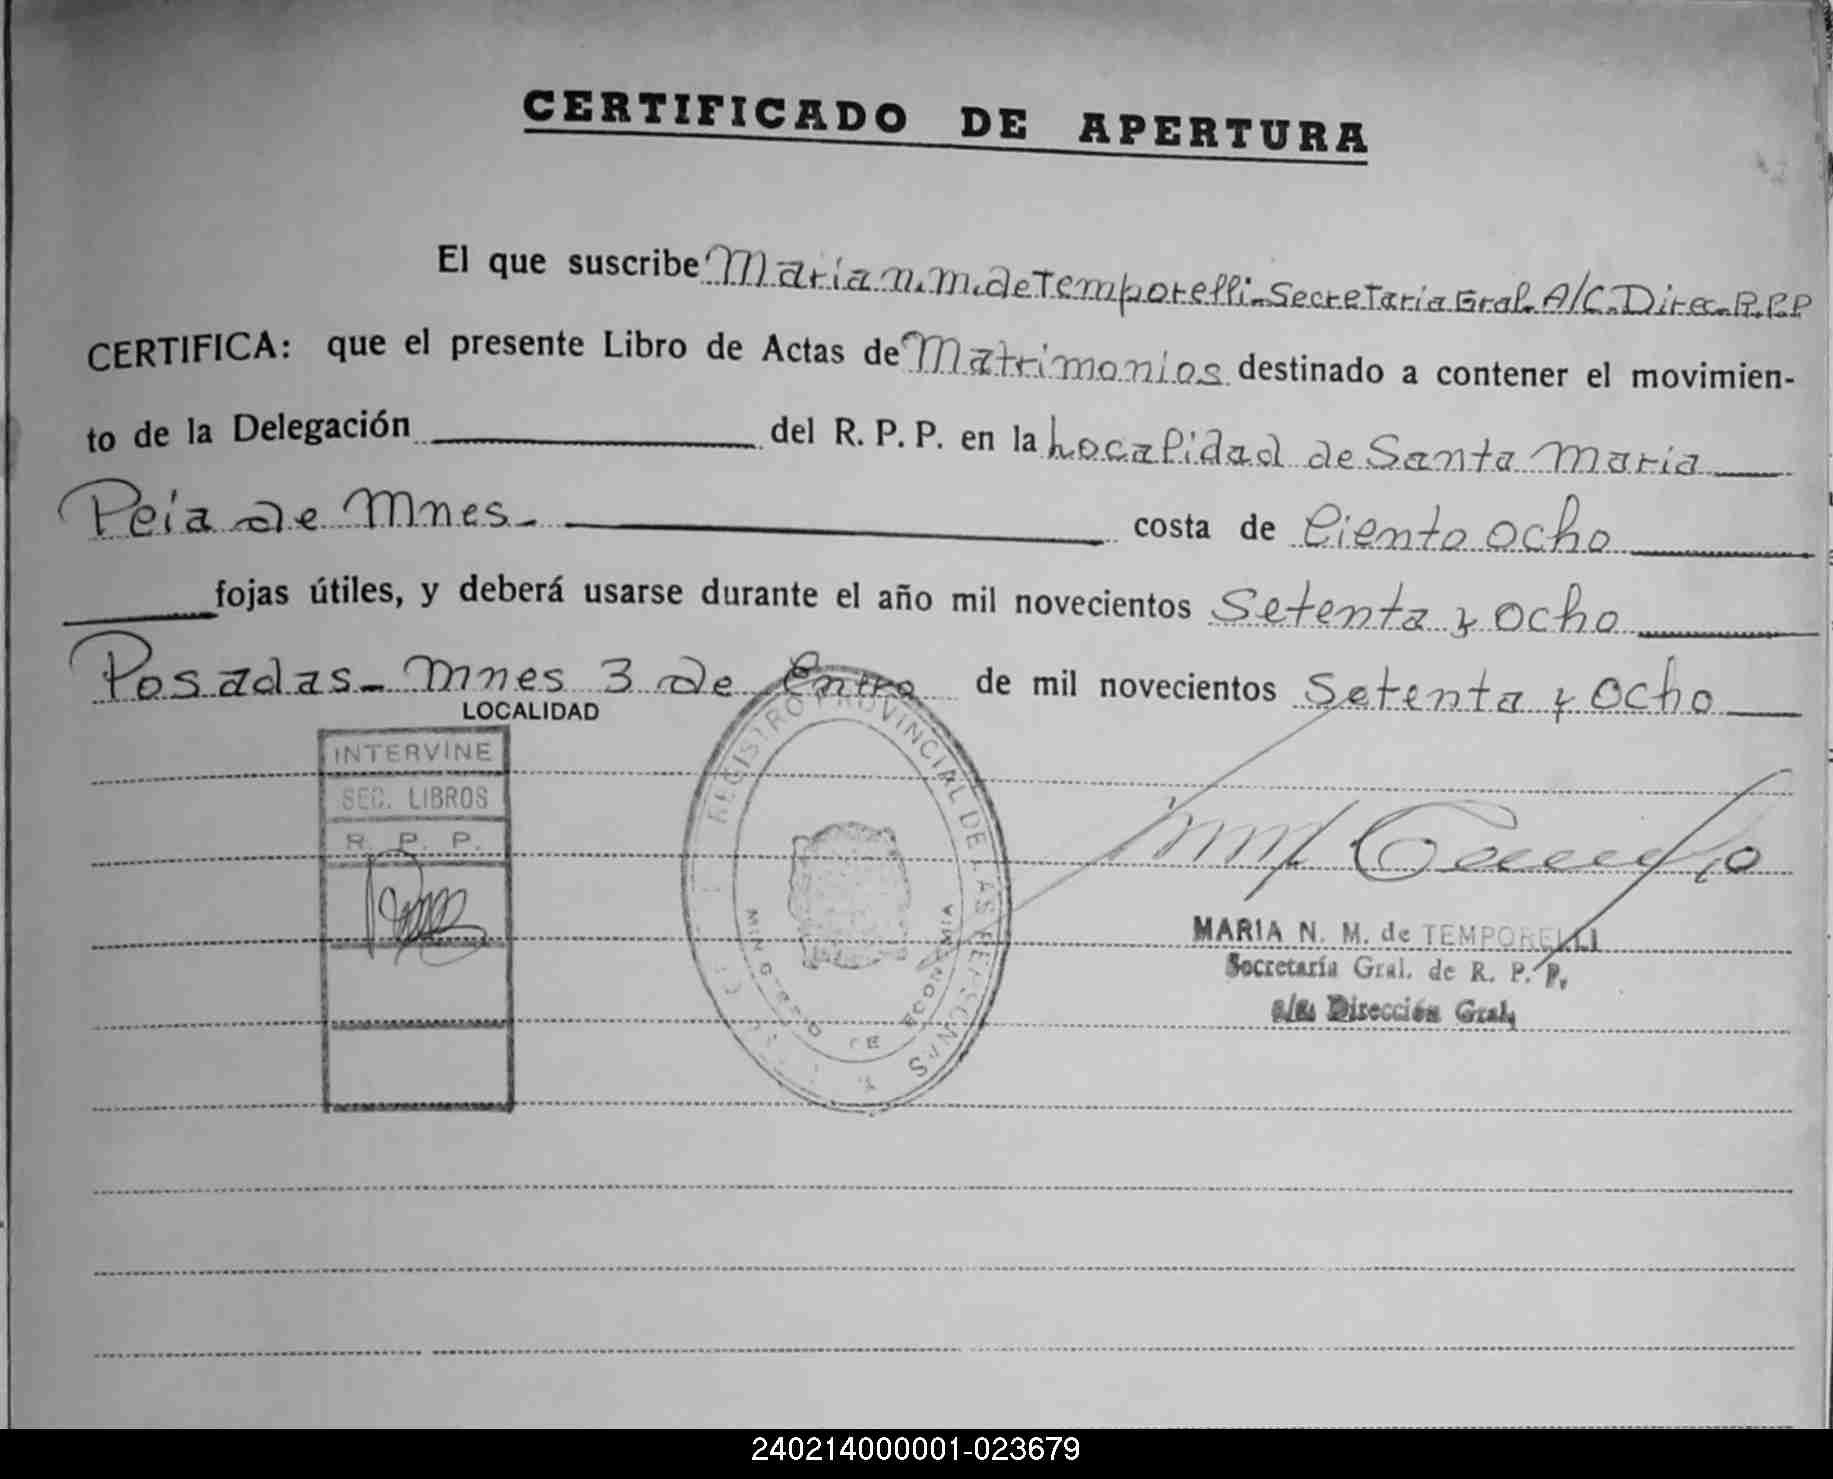 CERTIFICADO DE APERTURA
El que suscribe Maria N. M. de Temporelli - Secretaria Gral. A/C. Direc. R.P.P
CERTIFICA: que el presente Libro de Actas de Matrimonios destinado a contener el movimien-
to de la Delegación del R. P. P. en la Localidad de Santa Maria
Pcia de Mnes - costa de Ciento ocho
fojas útiles, y deberá usarse durante el año mil novecientos Setenta y ocho
Posadas - Mnes 3 de Enero de mil novecientos Setenta y Ocho
LOCALIDAD
INTERVINE
SEC. LIBROS
R. P. P.
REGISTRO PROVINCIAL DE LAS PERSONAS
MINISTERIO DE ECONOMIA
MARIA N. M. de TEMPORELLI
Secretaría Gral. de R. P. P.
a/c. Dirección Gral.
240214000001-023679